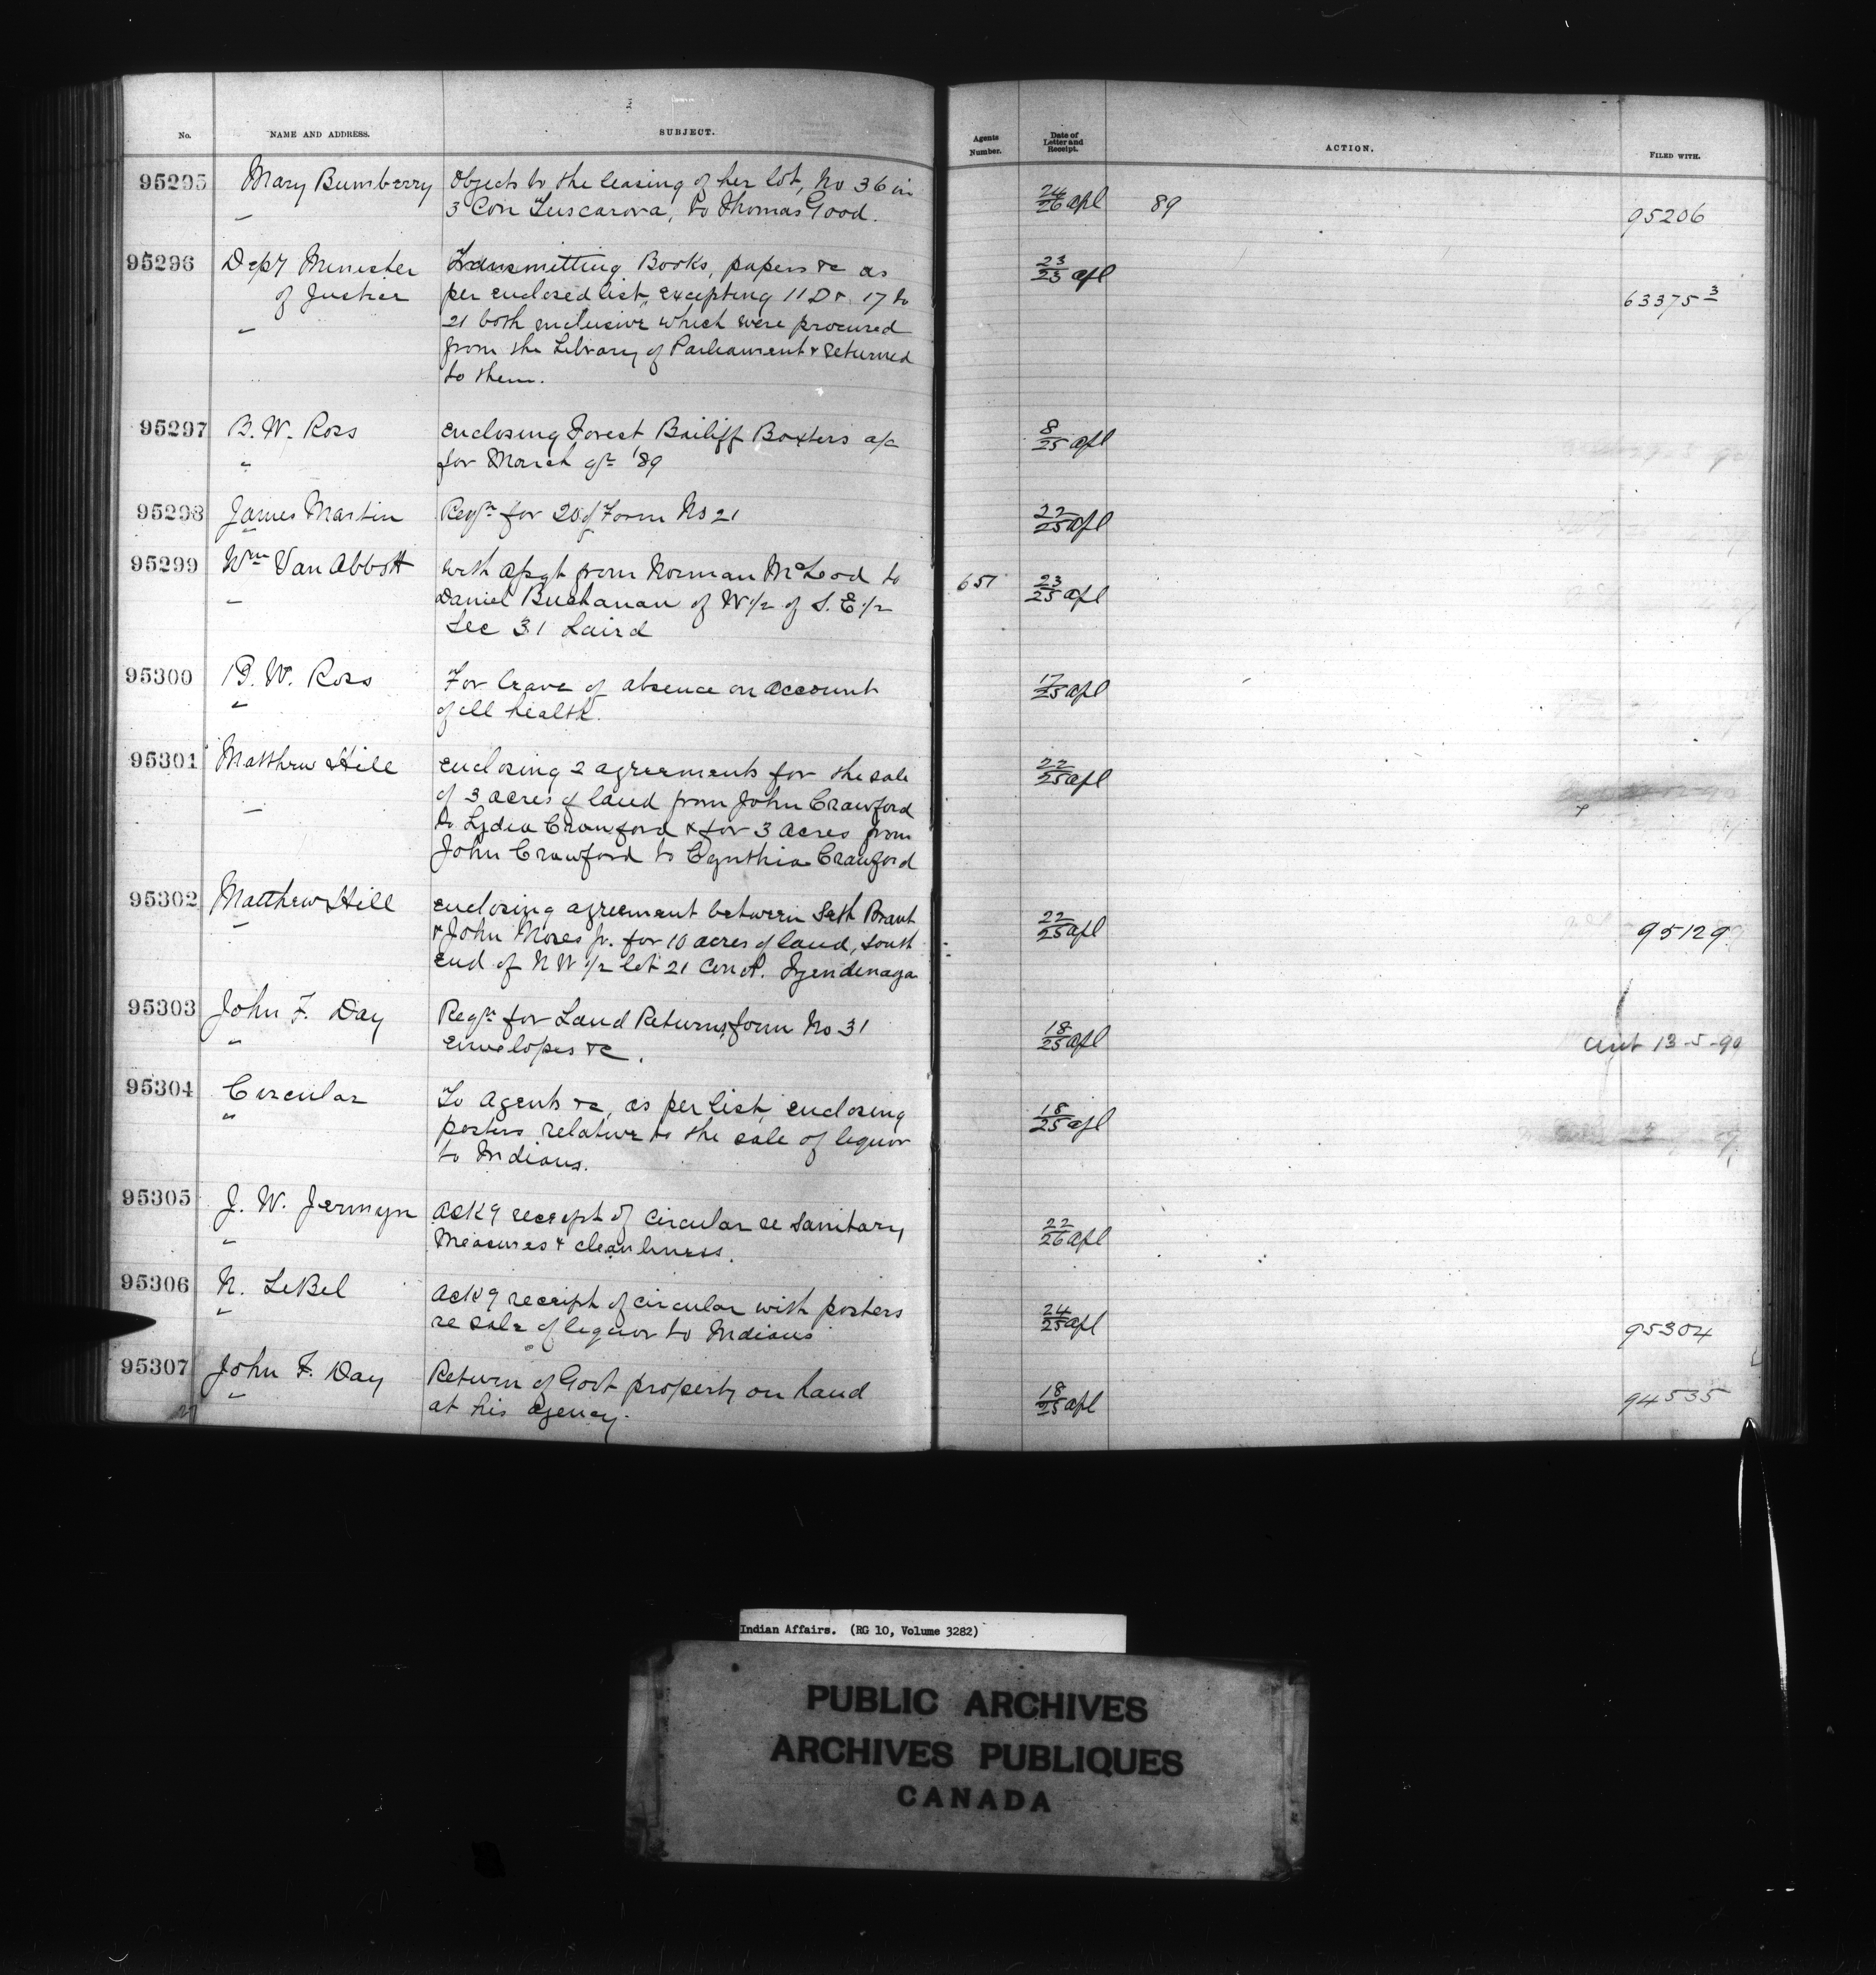 No. NAME AND ADDRESS. SUBJECT. Agents Number. Date of Letter and Receipt. ACTION. FILED WITH.
95295 Mary Bumberry Objects to the leasing of her lot, No 36 in 24/26 apl 89 95206
" 3 Con Tuscarora, to Thomas Good.
95296 Depy Minister Transmitting Books, papers &c as 23/23 apl 63375 3
of Justice per enclosed list, excepting 11 D & 17 to
" 21 both inclusive which were procured
from the Library of Parliament & returned
to them.
95297 B. W. Ross Enclosing Forest Bailiff Boxters a/c 8/25 apl
" for March qr '89
95298 James Martin Reqn for 20 of Form No 21 22/25 apl
"
95299 Wm Van Abbott with asgt from Norman McLeod to 651 23/25 apl
" Daniel Buchanan of W 1/2 of S. E 1/2
Sec 31 Laird
95300 B. W. Ross For leave of absence on account 17/25 apl
" of ill health.
95301 Matthew Hill enclosing 2 agreements for the sale 22/25 apl
" of 3 acres of land from John Crawford
to Lydia Crawford & for 3 acres from
John Crawford to Cynthia Crawford
95302 Matthew Hill enclosing agreement between Seth Brant 22/25 apl 95129
" & John Moses jr. for 10 acres of land, south
end of N W 1/2 lot 21 Con A. Tyendenaga
95303 John F. Day Reqn for Land Returns, form No 31 18/25 apl 13-5-90
" envelopes &c.
95304 Circular To Agents &c, as per list, enclosing 18/25 apl
" posters relative to the sale of liquor
to Indians.
95305 J. W. Jermyn Ackg receipt of circular re sanitary 22/26 apl
" Measures & cleanliness.
95306 N. LeBel Ackg receipt of circular with posters 24/25 apl 95304
" re sale of liquor to Indians
95307 John F. Day Return of Govt property on hand 18/25 apl 94535
" at his agency.
Indian Affairs. (RG 10, Volume 3282)
PUBLIC ARCHIVES
ARCHIVES PUBLIQUES
CANADA